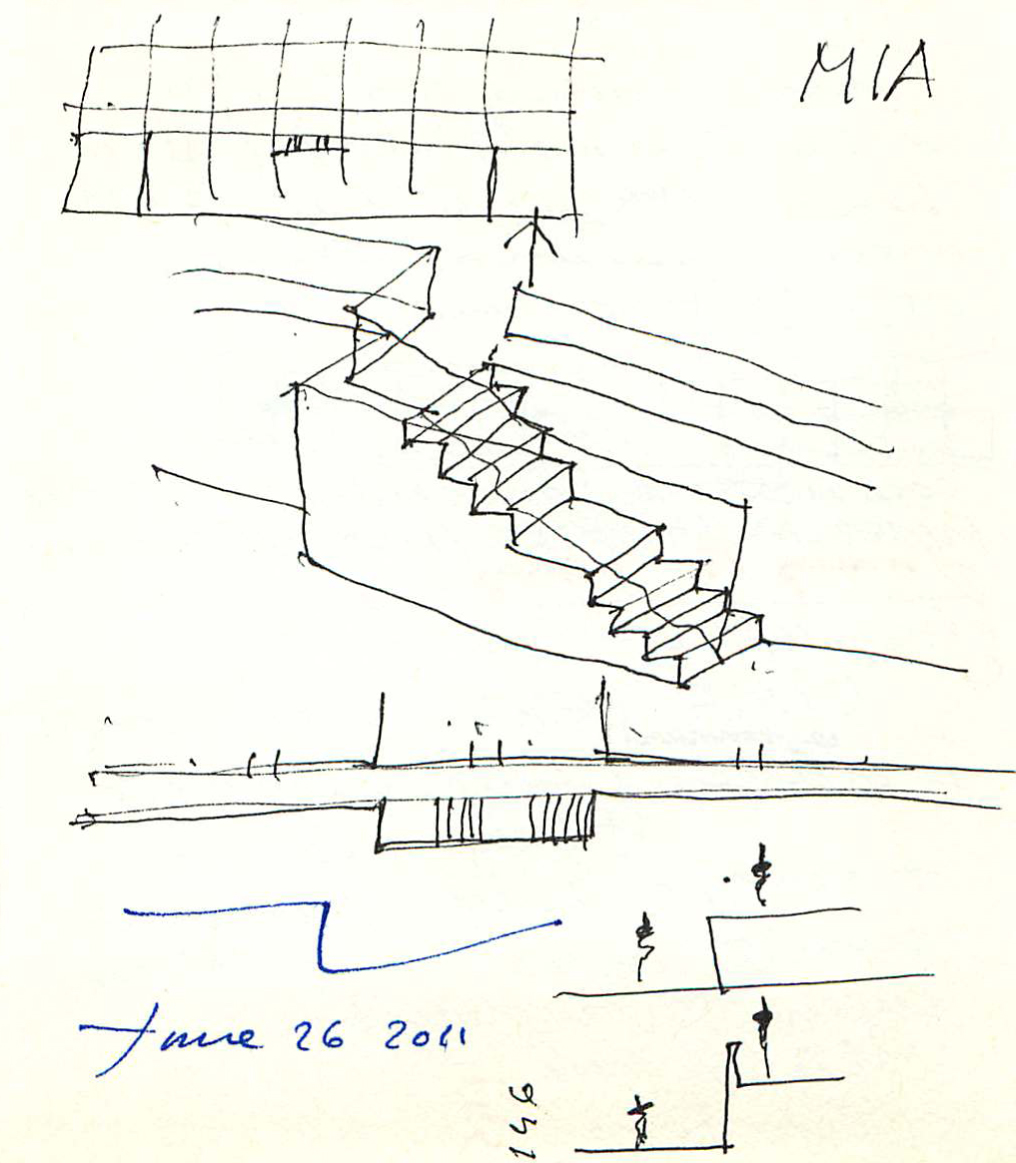 MIA
June 26 2011
146